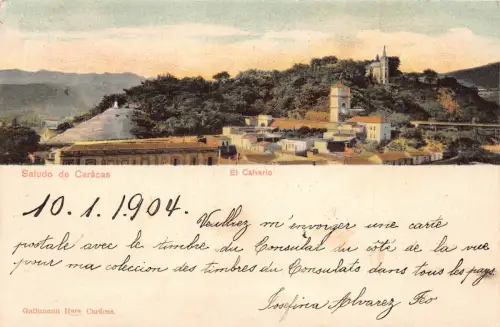 Saludo de Carácas
El Calvario
10.1.1904.
Veuillez m'envoyer une carte
postale avec le timbre du Consulat du côté de la vue
pour ma coleccion des timbres du Consulats dans tous les pays.
Josefina Alvarez Feo
Gathmann Hnrs Carácas.